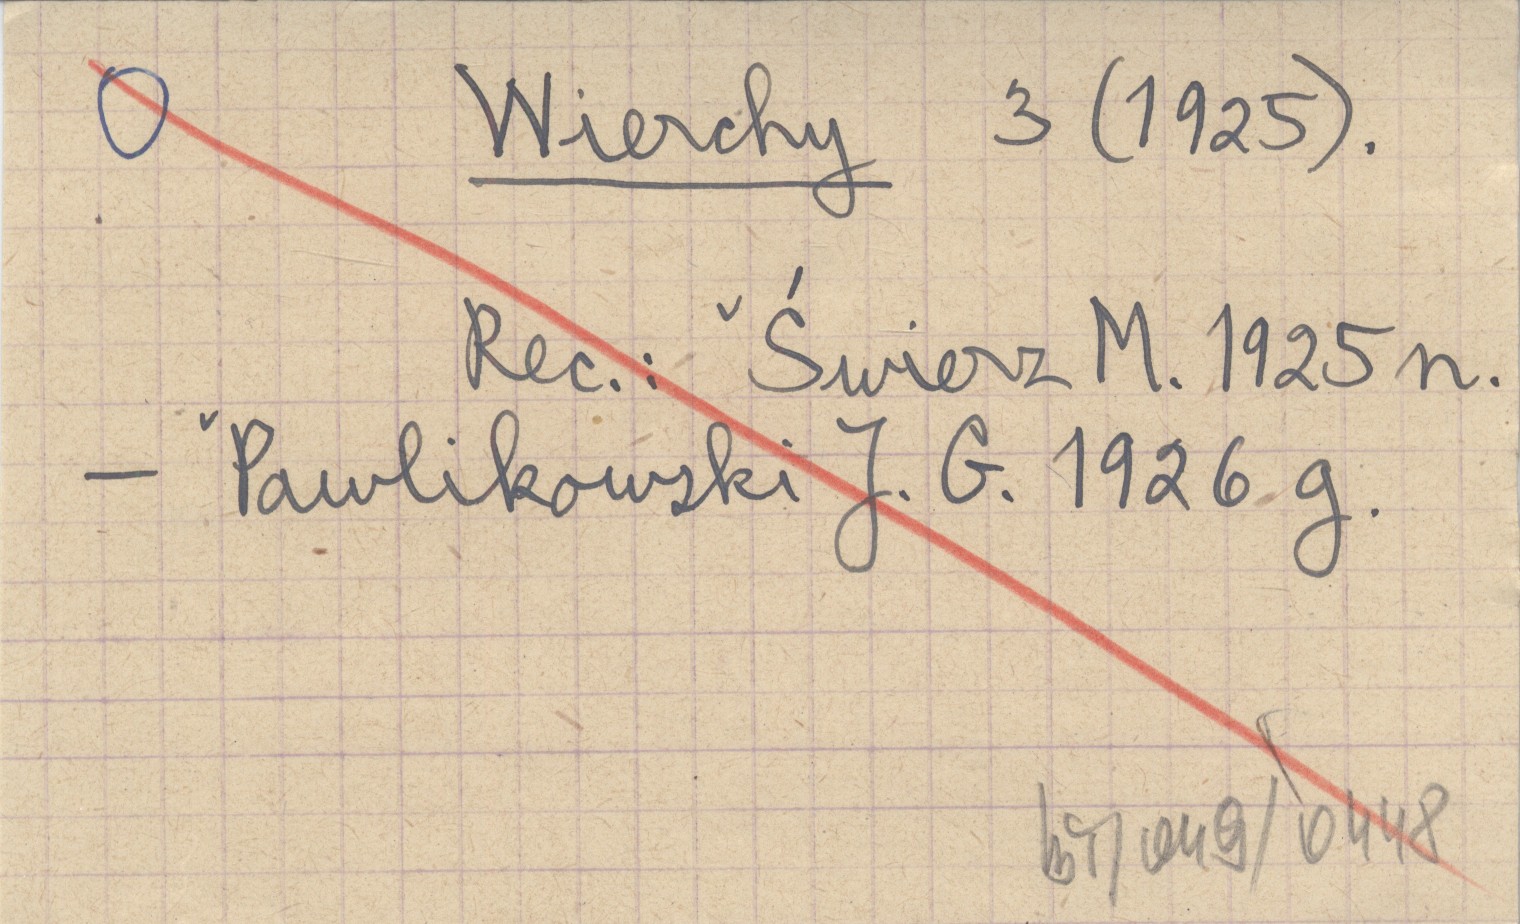 Wierchy 3 (1925).
Rec.: ˇŚwierz M. 1925 n.
— ˇPawlikowski J. G. 1926 g.
049/0448